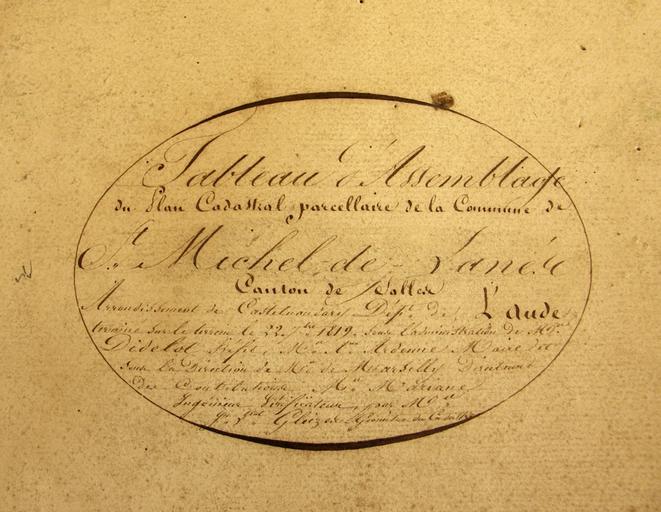 Tableau d'Assemblage
du Plan Cadastral parcellaire de la Commune de
St. Michel-de-Lanès
Canton de Salles
Arrondissement de Castelnaudary Dépt. de L'aude
terminé sur le terrein le 22 1819, sous l'administration de Mr
Didelot Préfet, Mr. Ardenne Maire et
sous la Direction de Mr. de Marsilly
des Contributions, Mr.
Ingénieur Vérificateur, par Mr
Gleizes Géomètre du Cadastre